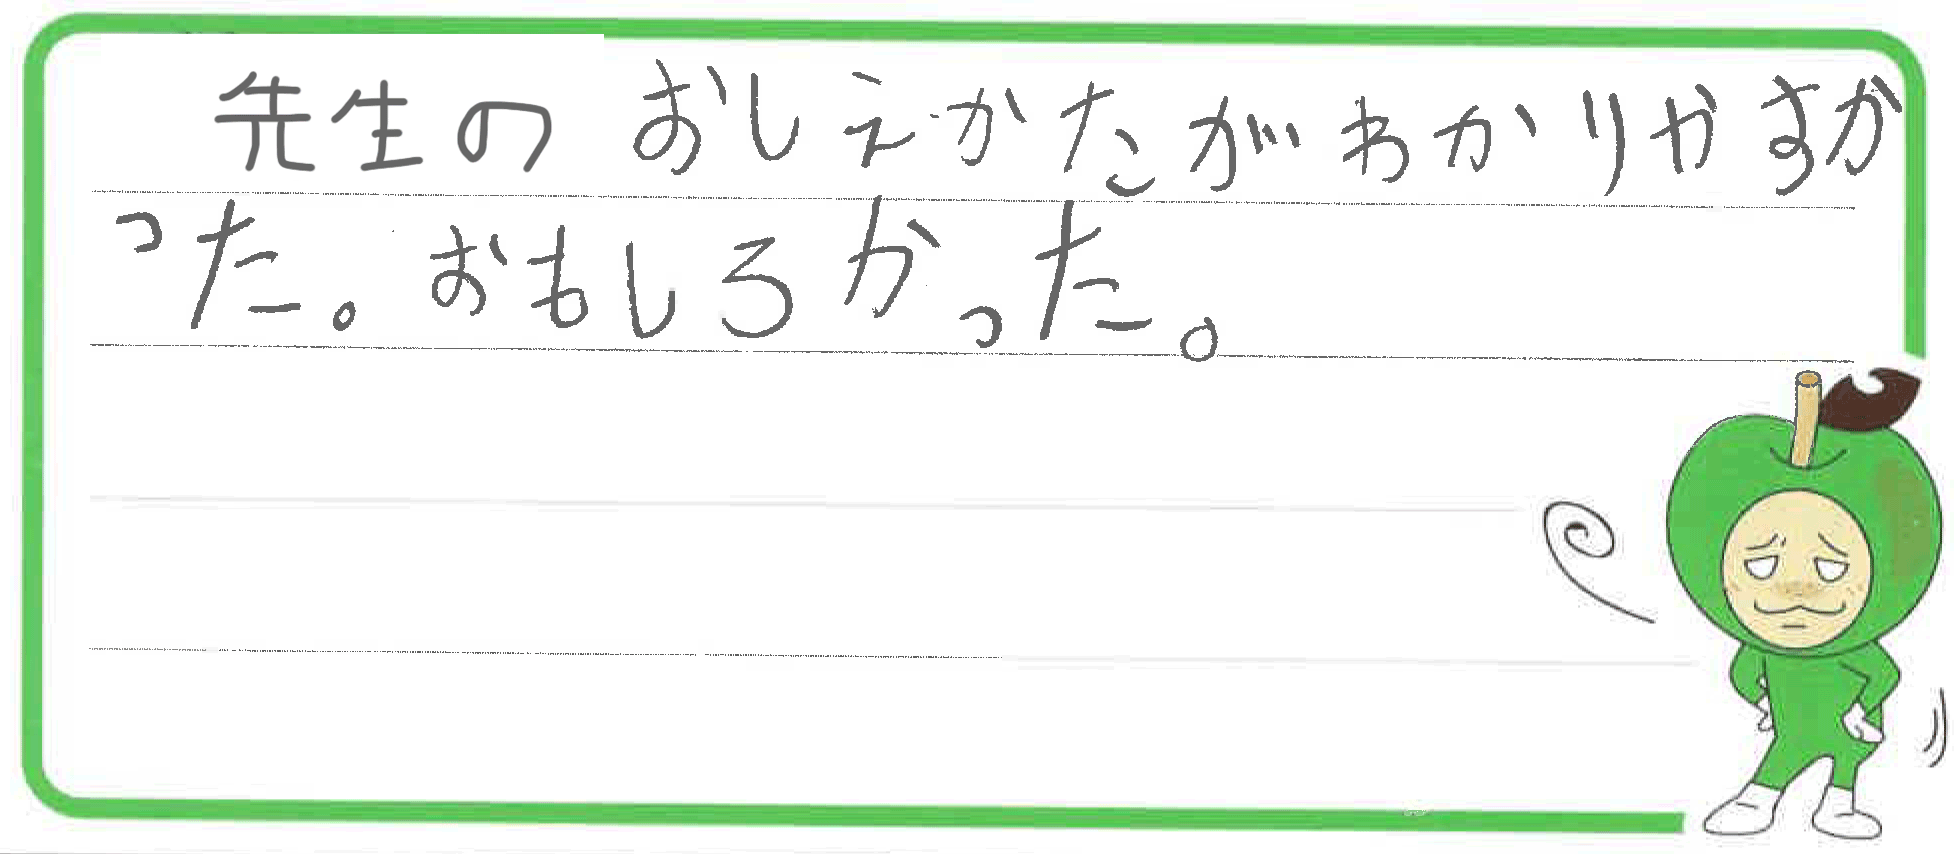 先生のおしえかたがわかりやすか
った。おもしろかった。